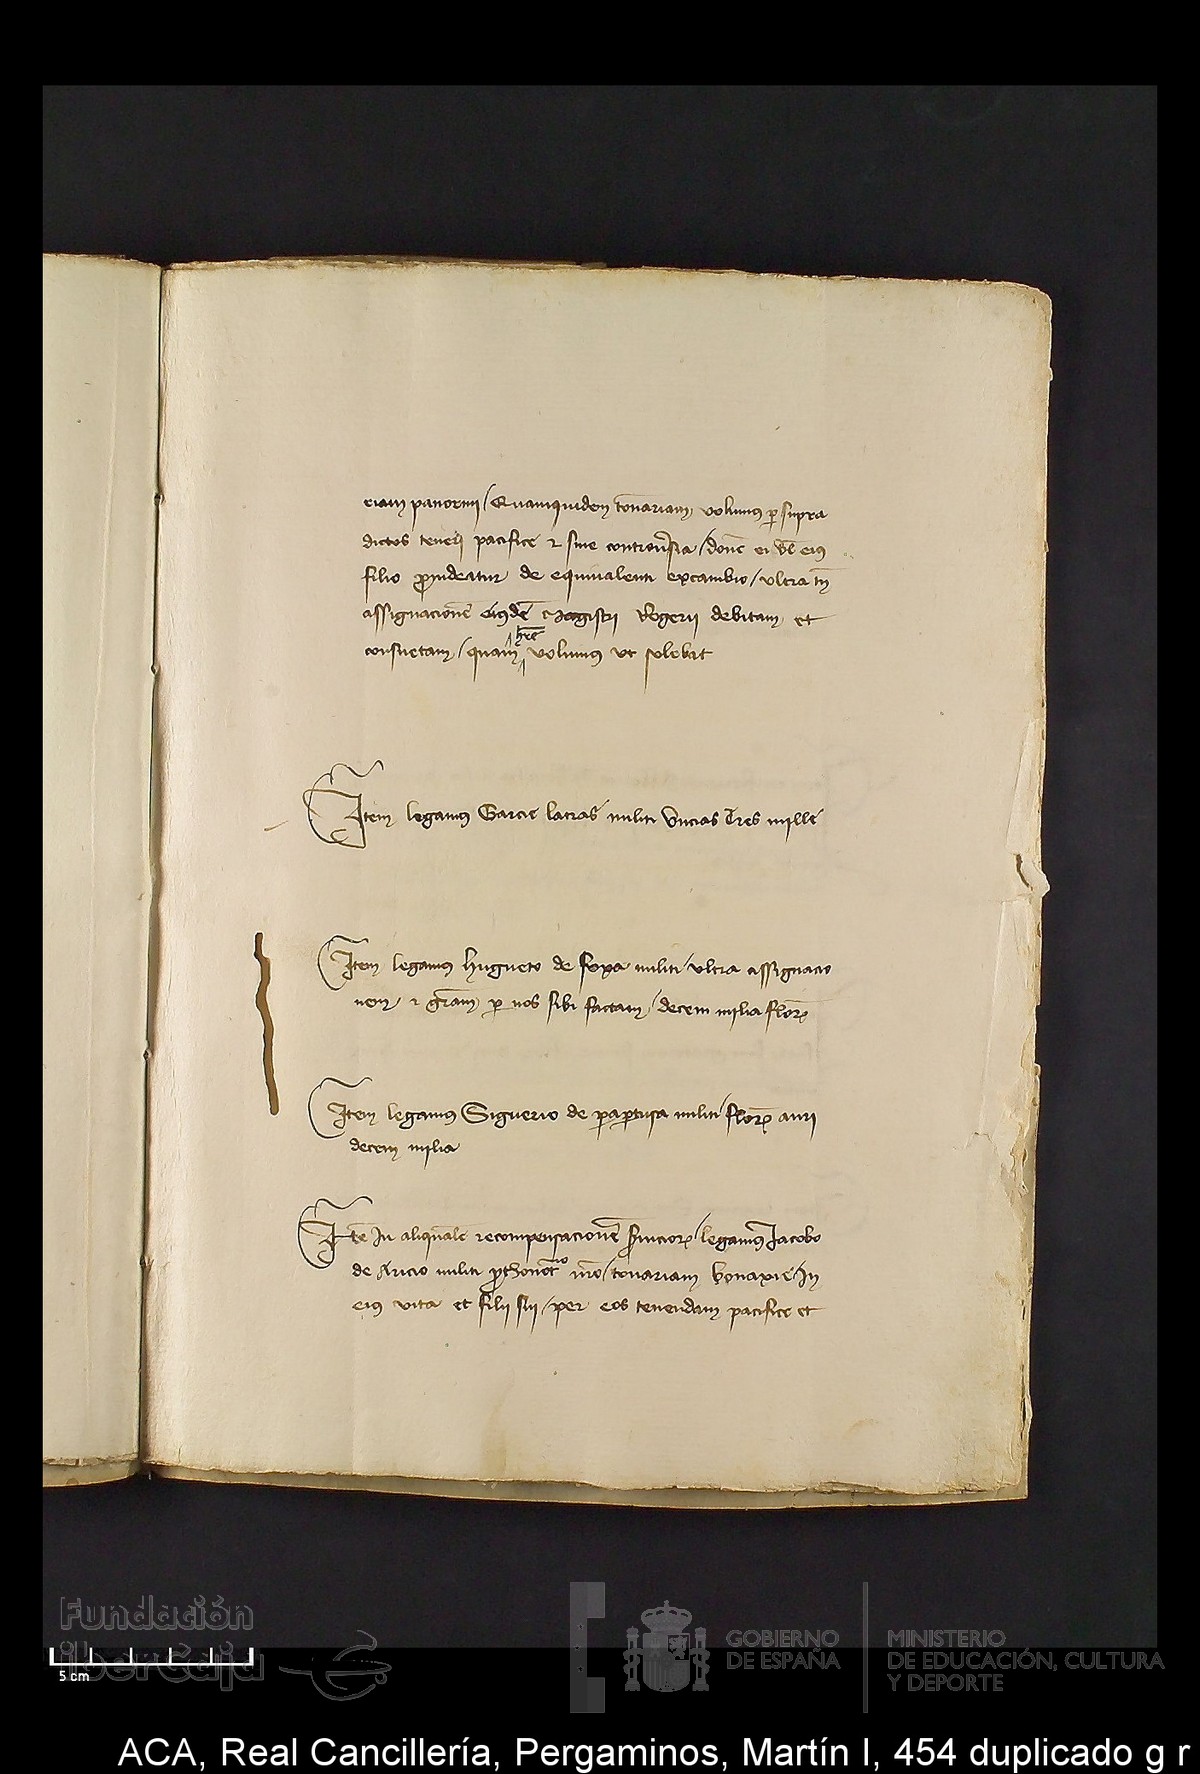 ciam panormj / Quamquidem tonariam volumus p supra
dictos tenerj pacifice & sine controusia / donec ei vel eius
filio puideatur de equiualenti excambio / vltra tn
assignacione eiusde magistri Rogerii debitam et
consuetam / quam hre volumus vt solebat
Item legamus Garcie latras militi vncias Tres mille
Item legamus hugueto de foxa militi / vltra assignacio
nem & gram p nos sibi factam / decem milia flor
Item legamus Siguerio de papertusa militi / flor auri
decem milia
Ite In aliquale recompensacione seruicior / legamus Jacobo
de Aricio militi pthonotio nro / tonariam bonaxie / In
eius vita et filii sui / per eos tenendam pacifice et
Fundación
iberCaja
5 cm
GOBIERNO
DE ESPAÑA
MINISTERIO
DE EDUCACIÓN, CULTURA
Y DEPORTE
ACA, Real Cancillería, Pergaminos, Martín I, 454 duplicado g r